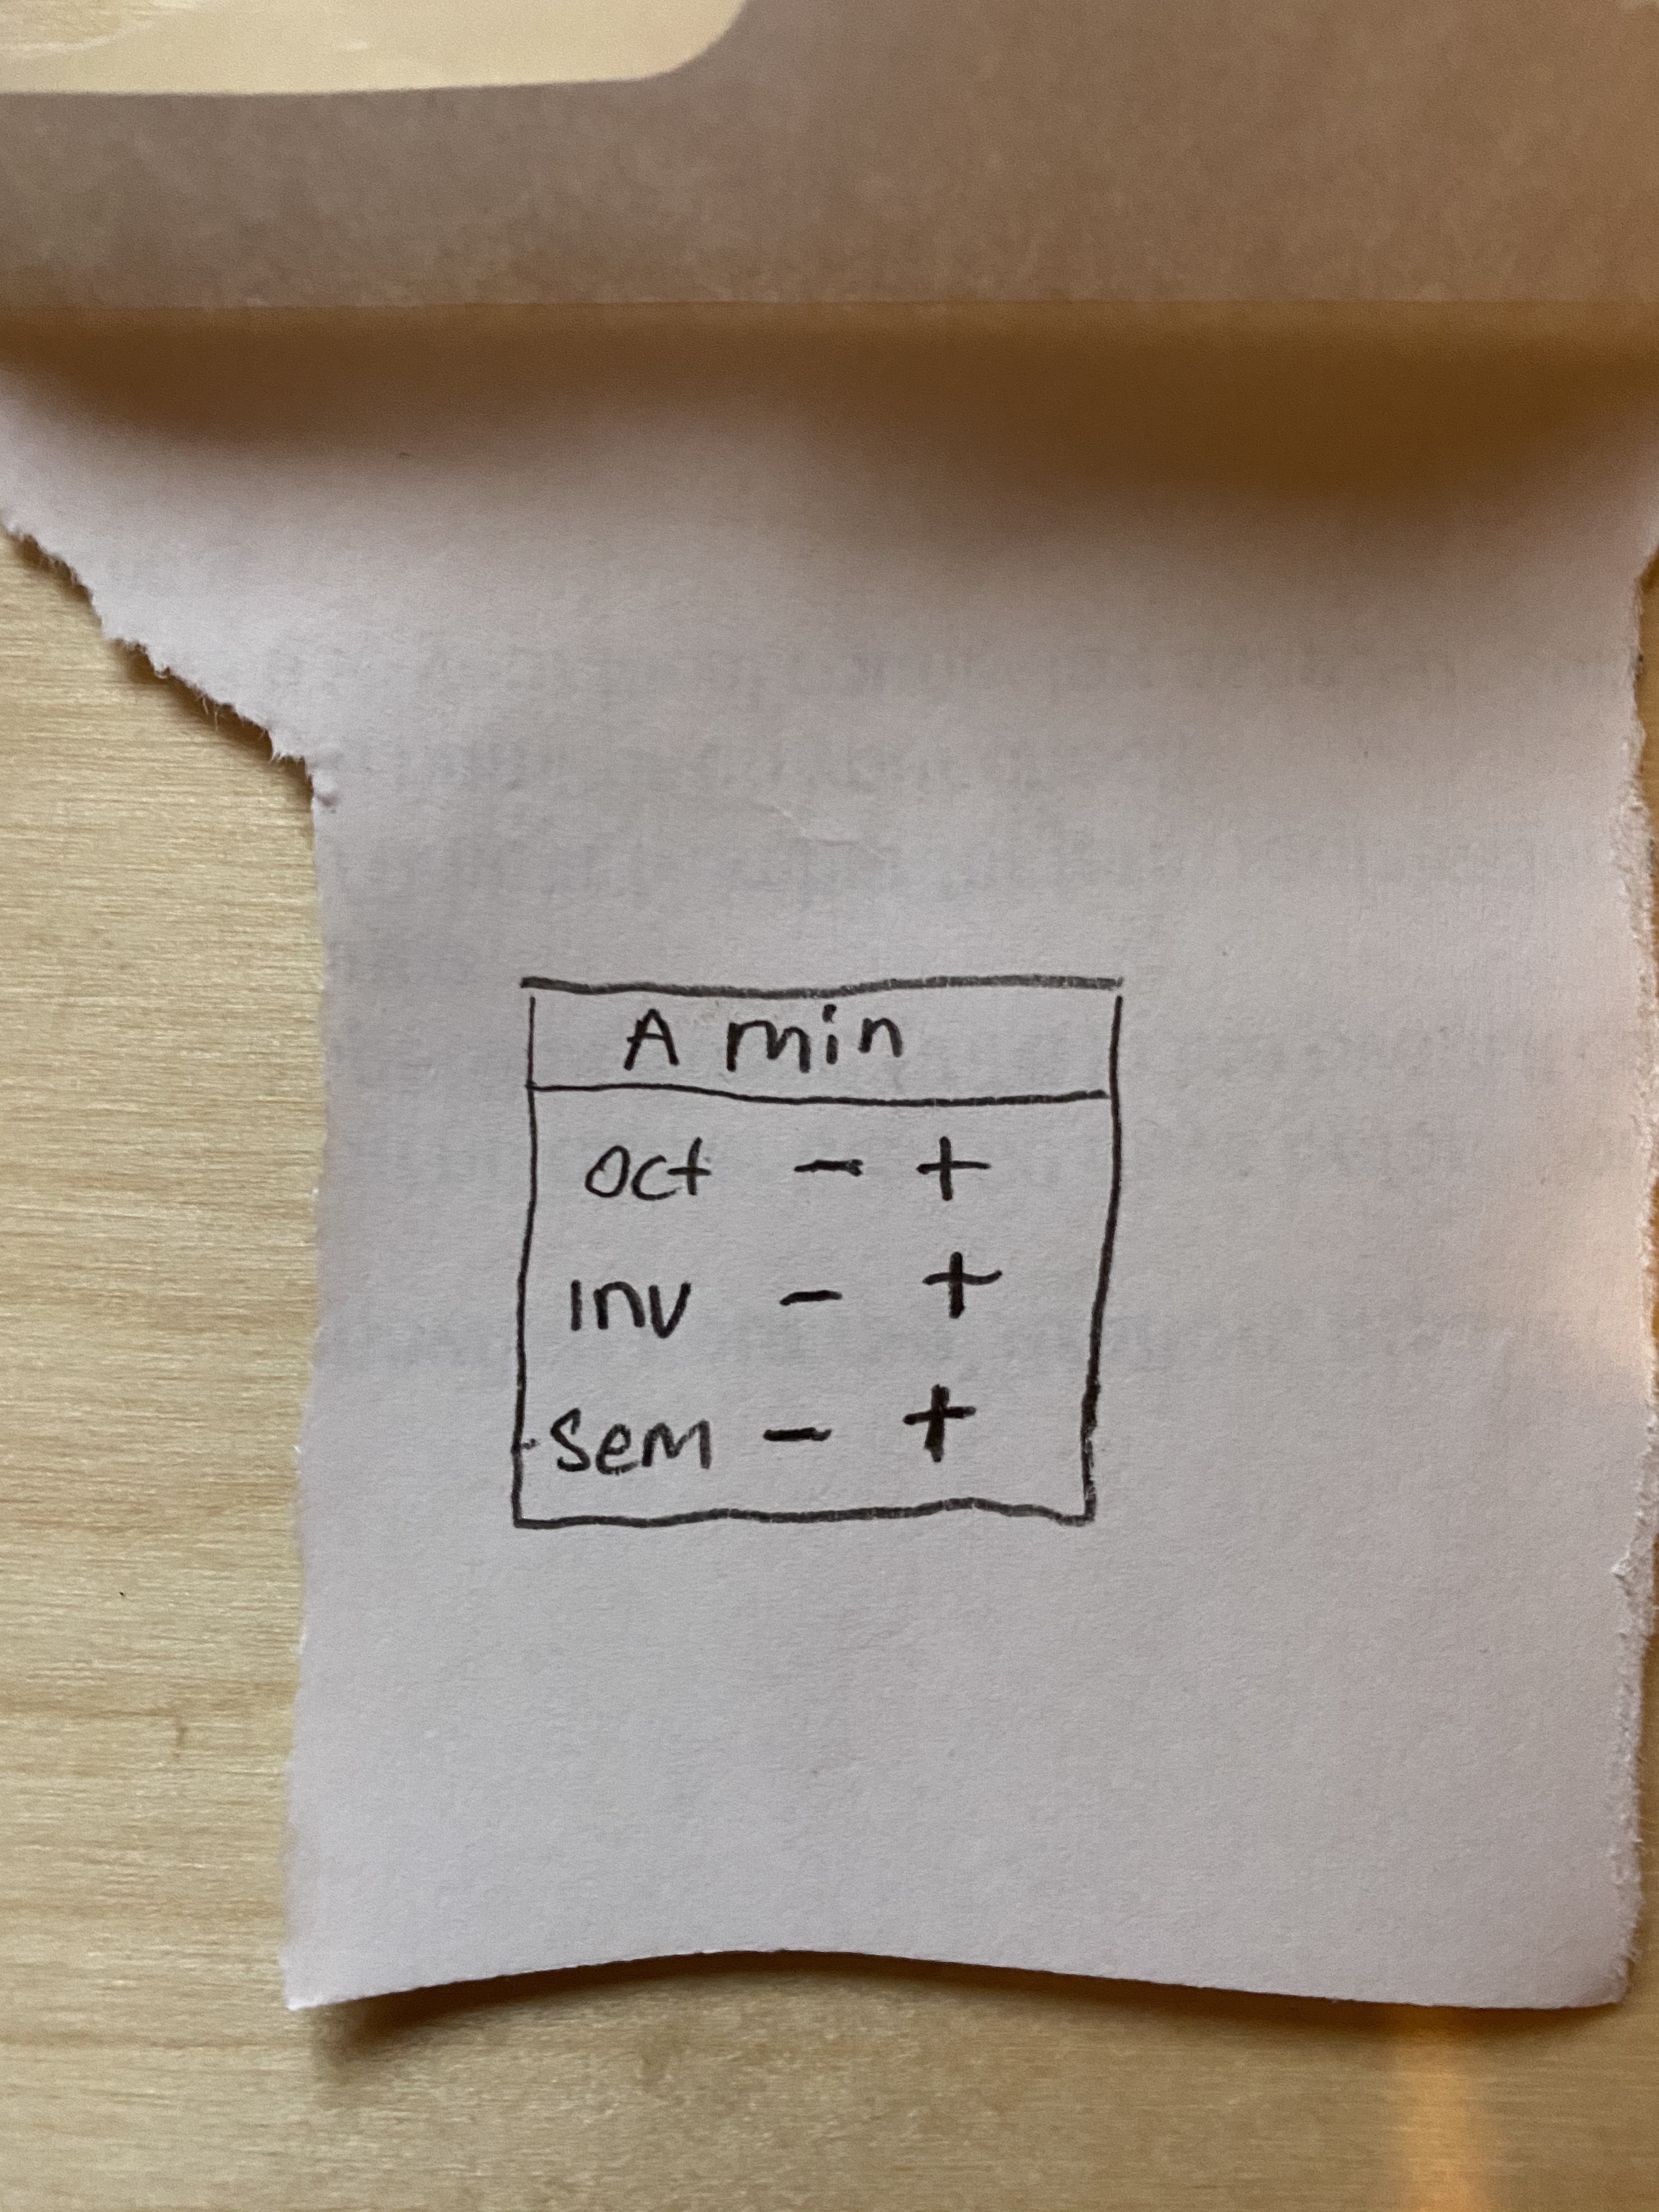 A min
oct - +
inv - +
sem - +